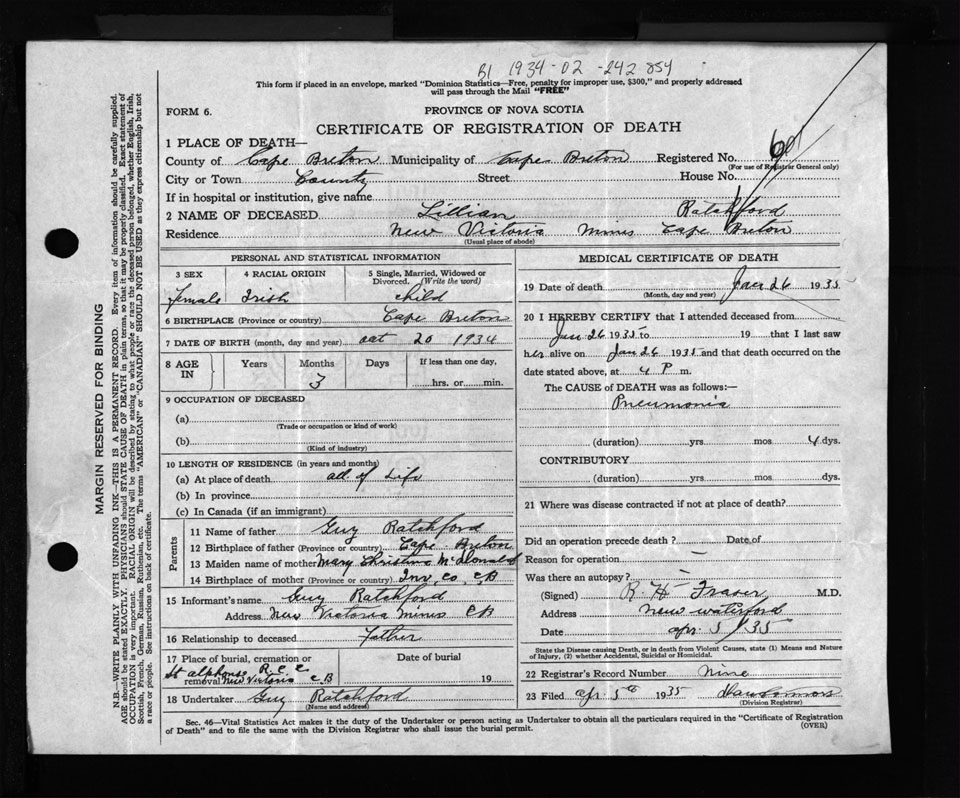 B1 1934-02-242854
This form if placed in an envelope, marked "Dominion Statistics—Free, penalty for improper use, $300," and properly addressed
will pass through the Mail "FREE"
FORM 6.
PROVINCE OF NOVA SCOTIA
CERTIFICATE OF REGISTRATION OF DEATH
1 PLACE OF DEATH—
County of Cape Breton Municipality of Cape Breton Registered No.
(For use of Registrar General only)
City or Town County Street House No.
If in hospital or institution, give name
2 NAME OF DECEASED Lillian Ratchford
Residence New Victoria Mines Cape Breton
(Usual place of abode)
PERSONAL AND STATISTICAL INFORMATION
3 SEX 4 RACIAL ORIGIN 5 Single, Married, Widowed or
Divorced. (Write the word)
female Irish child
6 BIRTHPLACE (Province or country) Cape Breton
7 DATE OF BIRTH (month, day and year) oct 20 1934
8 AGE IN Years Months Days If less than one day,
3 hrs. or min.
9 OCCUPATION OF DECEASED
(a)
(Trade or occupation or kind of work)
(b)
(Kind of industry)
10 LENGTH OF RESIDENCE (in years and months)
(a) At place of death all of Life
(b) In province
(c) In Canada (if an immigrant)
Parents
11 Name of father Guy Ratchford
12 Birthplace of father (Province or country) Cape Breton
13 Maiden name of mother Mary Christine McDonald
14 Birthplace of mother (Province or country) Inv. Co, C,B
15 Informant's name Guy Ratchford
Address New Victoria Mines CB
16 Relationship to deceased Father
17 Place of burial, cremation or removal Date of burial
St alphonse R.C.C
New Victoria C,B 19
18 Undertaker Guy Ratchford
(Name and address)
MEDICAL CERTIFICATE OF DEATH
19 Date of death Jan 26 1935
(Month, day and year)
20 I HEREBY CERTIFY that I attended deceased from
Jan 26 1935 to 19 that I last saw
her alive on Jan 26 1935 and that death occurred on the
date stated above, at 4 P m.
The CAUSE of DEATH was as follows:—
Pneumonia
(duration) yrs. mos. 4 dys.
CONTRIBUTORY
(duration) yrs. mos. dys.
21 Where was disease contracted if not at place of death?
Did an operation precede death? Date of
Reason for operation
Was there an autopsy?
(Signed) R. H. Fraser M.D.
Address New Waterford
Date apr 5/35
State the Disease causing Death, or in death from Violent Causes, state (1) Means and Nature
of Injury, (2) whether Accidental, Suicidal or Homicidal.
22 Registrar's Record Number Nine
23 Filed apr 5th 1935
(Division Registrar)
Sec. 46—Vital Statistics Act makes it the duty of the Undertaker or person acting as Undertaker to obtain all the particulars required in the "Certificate of Registration
of Death" and to file the same with the Division Registrar who shall issue the burial permit.
(OVER)
MARGIN RESERVED FOR BINDING
N.B.—WRITE PLAINLY WITH UNFADING INK—THIS IS A PERMANENT RECORD. Every item of information should be carefully supplied.
AGE should be stated EXACTLY. PHYSICIANS should STATE CAUSE OF DEATH in plain terms, so that it may be properly classified. Exact statement of
OCCUPATION is very important. RACIAL ORIGIN will be described by stating to what people or race the deceased person belonged, whether English, Irish,
Scottish, French, German, Russian, Ruthenian, etc. The terms "AMERICAN" or "CANADIAN" SHOULD NOT BE USED as they express citizenship but not
a race or people. See instructions on back of certificate.